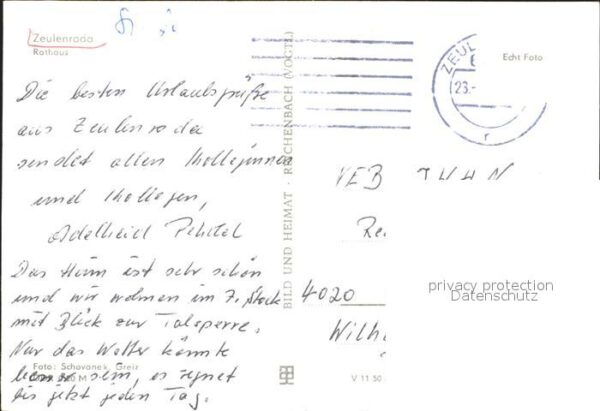 Zeulenroda
Rathaus
Echt Foto
ZEUL
23.-
Die besten Urlaubsgrüße
aus Zeulenroda
sendet allen Kolleginnen
und Kollegen,
Adelheid
Das Heim ist sehr schön
und wir wohnen im 7. Stock
mit Blick zur Talsperre.
Nur das Wetter könnte
besser sein, es regnet
bis jetzt jeden Tag.
Foto: Schovanek, Greiz
BILD UND HEIMAT · REICHENBACH (VOGTL)
VEB
4020
Wilh
V 11 50
privacy protection
Datenschutz